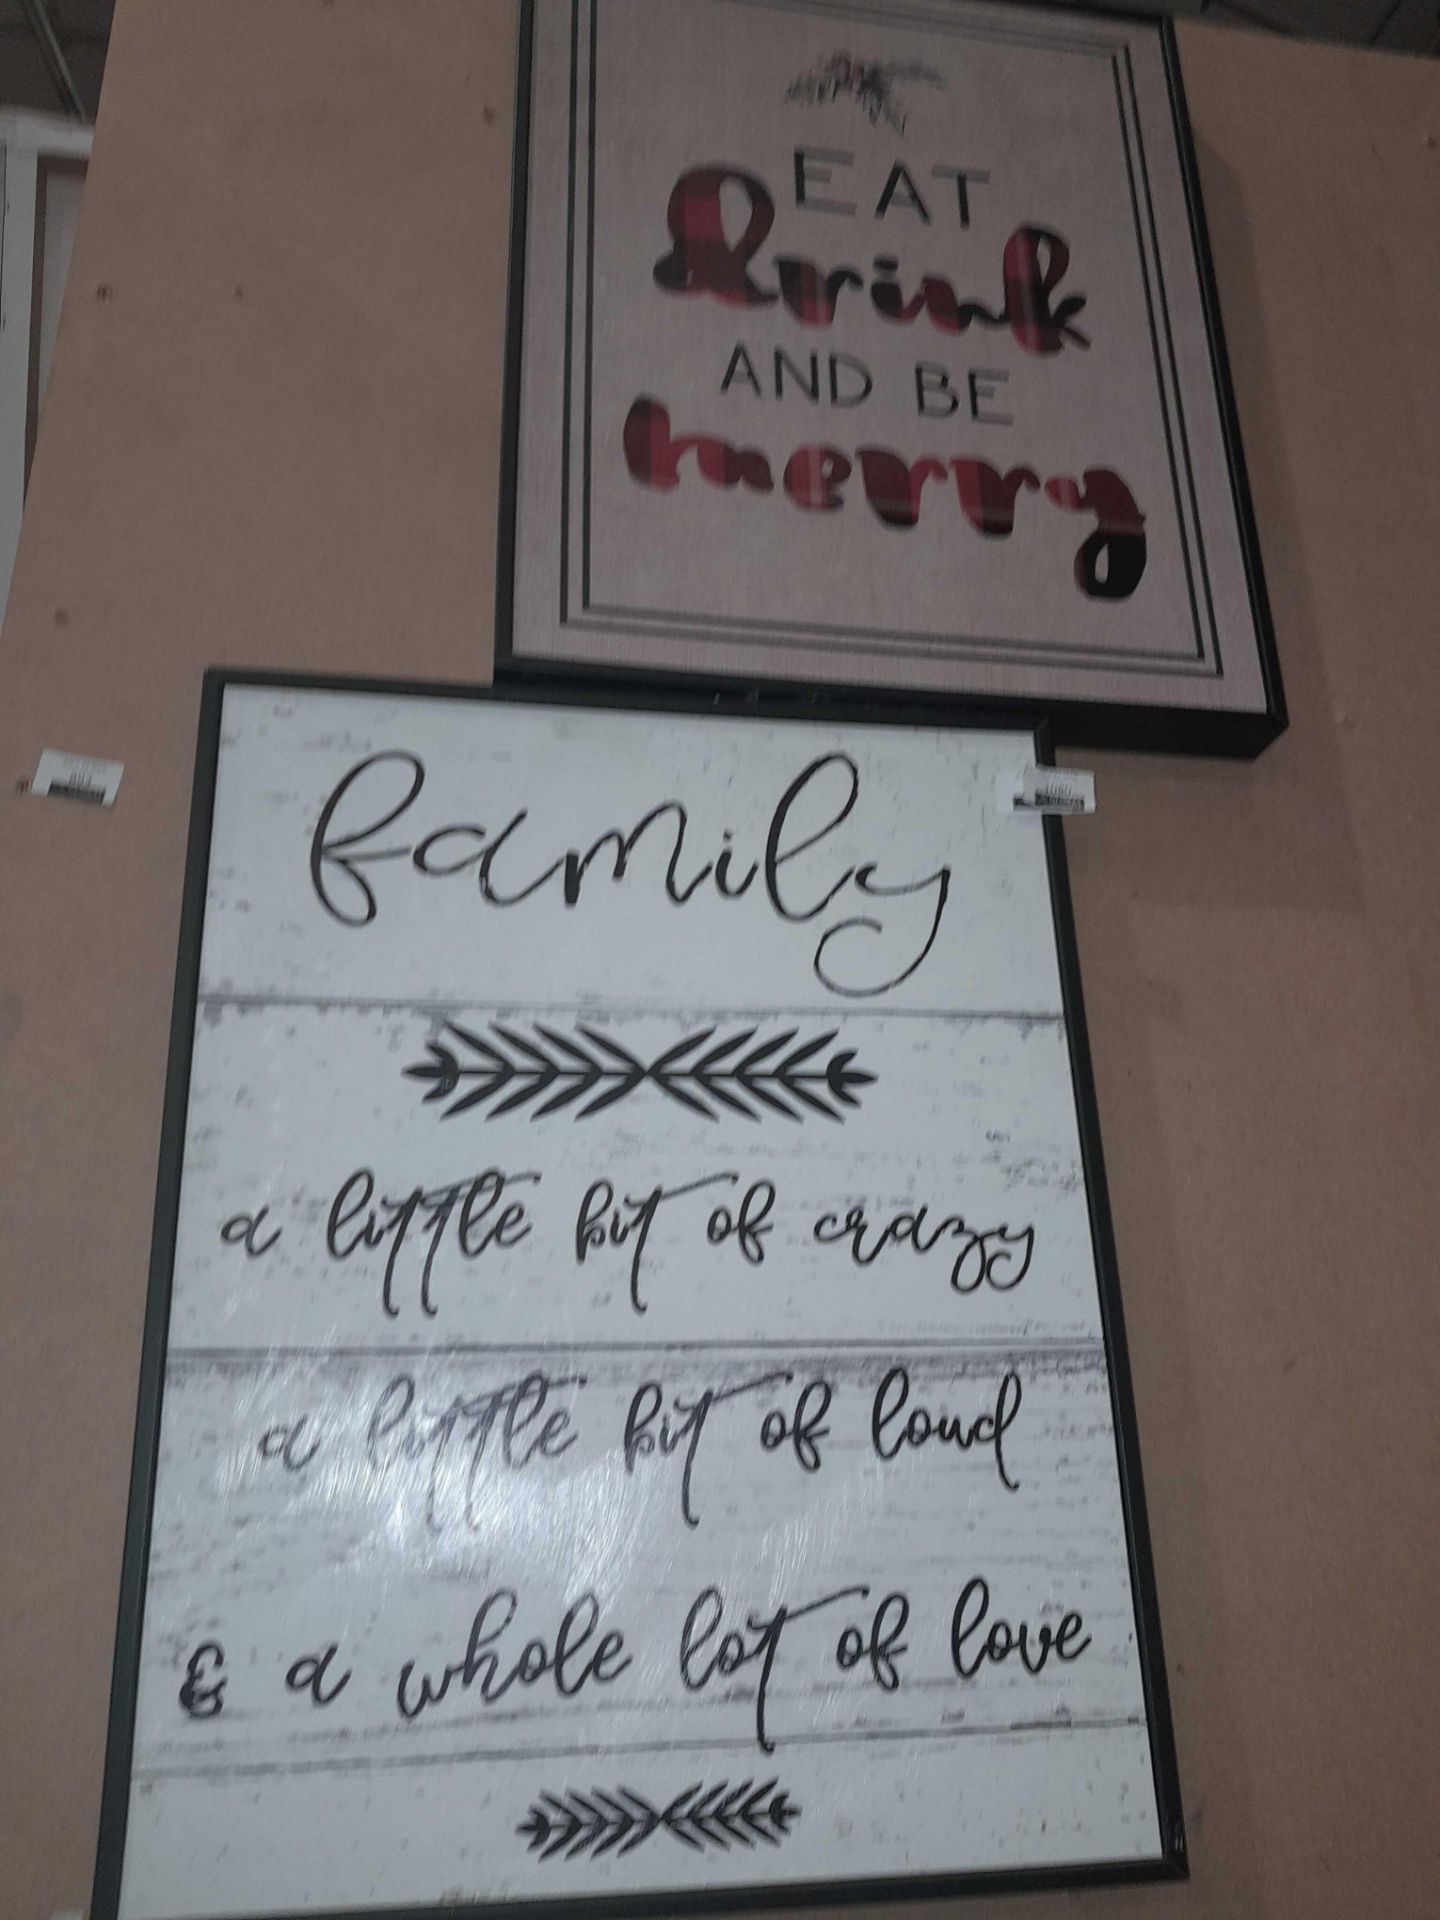 EAT
drink
AND BE
merry
family
a little bit of crazy
a little bit of loud
& a whole lot of love